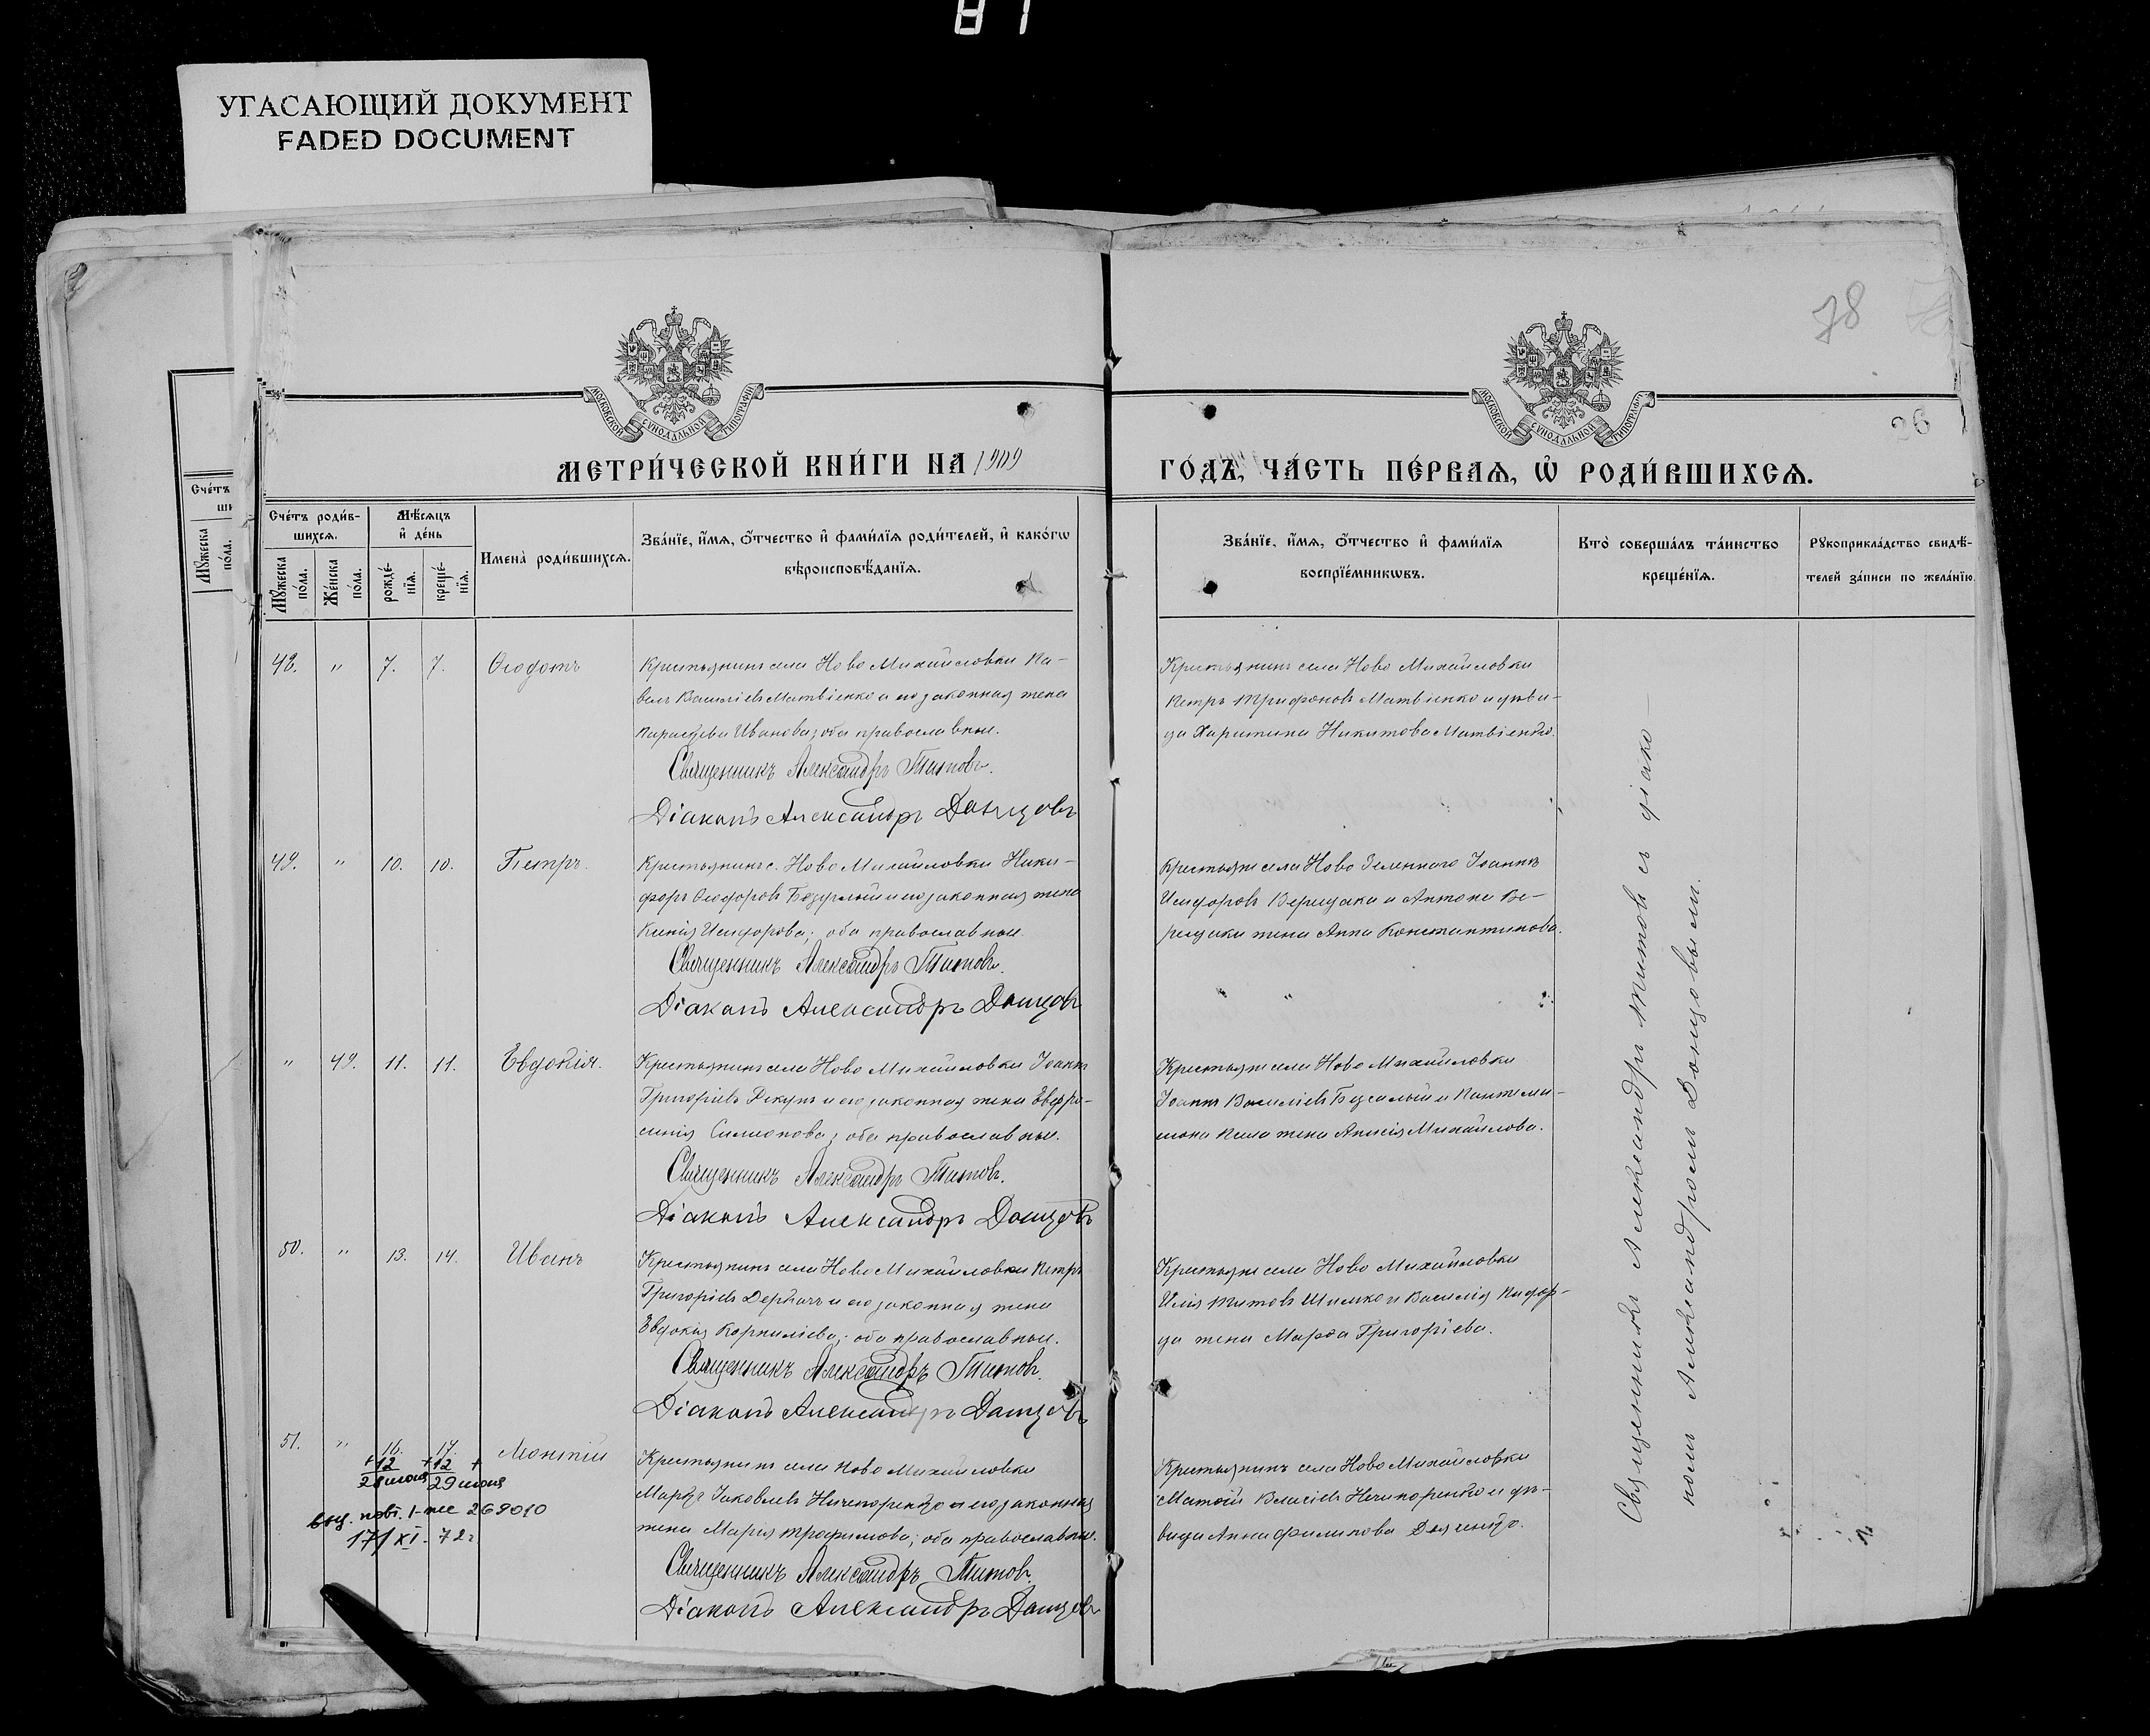 УГАСАЮЩИЙ ДОКУМЕНТ
FADED DOCUMENT
78
36
МОСКОВСКОЙ СѴНОДАЛЬНОЙ ТИПОГРАФІИ
МОСКОВСКОЙ СѴНОДАЛЬНОЙ ТИПОГРАФІИ
МЕТРИ́ЧЕСКОЙ КНИ́ГИ НА 1909
ГО́ДЪ, ЧА́СТЬ ПЕ́РВАѦ, Ѡ҆ РОДИ́ВШИХСѦ.
Сче́тъ роди́в-
шихсѧ.
Мꙋ́жеска по́ла.
Же́нска по́ла.
Мѣ́сѧцъ и҆ де́нь
рожде́-нїѧ.
креще́-нїѧ.
Имена̀ роди́вшихсѧ.
Зва́нїе, и҆́мѧ, ѻ҆́тчество и҆ фами́лїѧ роди́телей, и҆ како́гѡ
вѣроисповѣ́данїѧ.
Зва́нїе, и҆́мѧ, ѻ҆́тчество и҆ фами́лїѧ
воспрїе́мникѡвъ.
Кто̀ соверша́лъ та́инство
креще́нїѧ.
Рꙋкоприкла́дство свидѣ́-
телей за́писи по жела́нїю.
48. " 7. 7. Ѳеодотъ
Крестьянинъ села Ново Михайловки Па-
велъ Василіевъ Матвіенко и его законная жена
Параскева Иванова; оба православные.
Священникъ Александръ Титовъ.
Діаконъ Александръ Донцовъ
Крестьянинъ села Ново Михайловки
Петръ Трифоновъ Матвіенко и дѣви-
ца Харитина Никитова Матвіенко.
49. " 10. 10. Петръ.
Крестьянинъ с. Ново Михайловки Ники-
форъ Ѳеодоровъ и его законная жена
Ксенія Исидорова; оба православные.
Священникъ Александръ Титовъ.
Діаконъ Александръ Донцовъ
Крестьяне села Ново Зеленнаго Іоаннъ
Исидоровъ Верещака и Антона Ве-
рещаки жена Анна Константинова.
" 49. 11. 11. Евдокія.
Крестьянинъ села Ново Михайловки Іоаннъ
Григоріевъ и его законная жена Евфро-
синія Симеонова; оба православные.
Священникъ Александръ Титовъ.
Діаконъ Александръ Донцовъ
Крестьяне села Ново Михайловки
Іоаннъ Василіевъ и Пантелеи-
мона жена Анисія Михайлова.
50. " 13. 14. Иванъ
Крестьянинъ села Ново Михайловки Петръ
Григоріевъ Деркачъ и его законная жена
Евдокія Корниліева; оба православные.
Священникъ Александръ Титовъ.
Діаконъ Александръ Донцовъ
Крестьяне села Ново Михайловки
Илія Титовъ и Василія
жена Марѳа Григоріева.
51. " 16. 17.
+12 +12 +
28 июня 29 июня
269010
17/XI-72г
Крестьянинъ села Ново Михайловки
Марко Іаковлевъ Ничипоренко и его законная
жена Марія Трофимова; оба православные.
Священникъ Александръ Титовъ.
Діаконъ Александръ Донцовъ
Крестьянинъ села Ново Михайловки
Матѳій Власіевъ Ничипоренко и дѣ-
вица Анна Филипова Дяченко.
Священникъ Александръ Титовъ съ діако-
номъ Александромъ Донцовымъ.